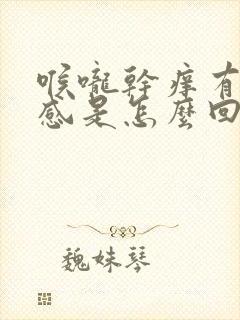 喉嚨幹癢有
感是怎麼回
魏妹琴